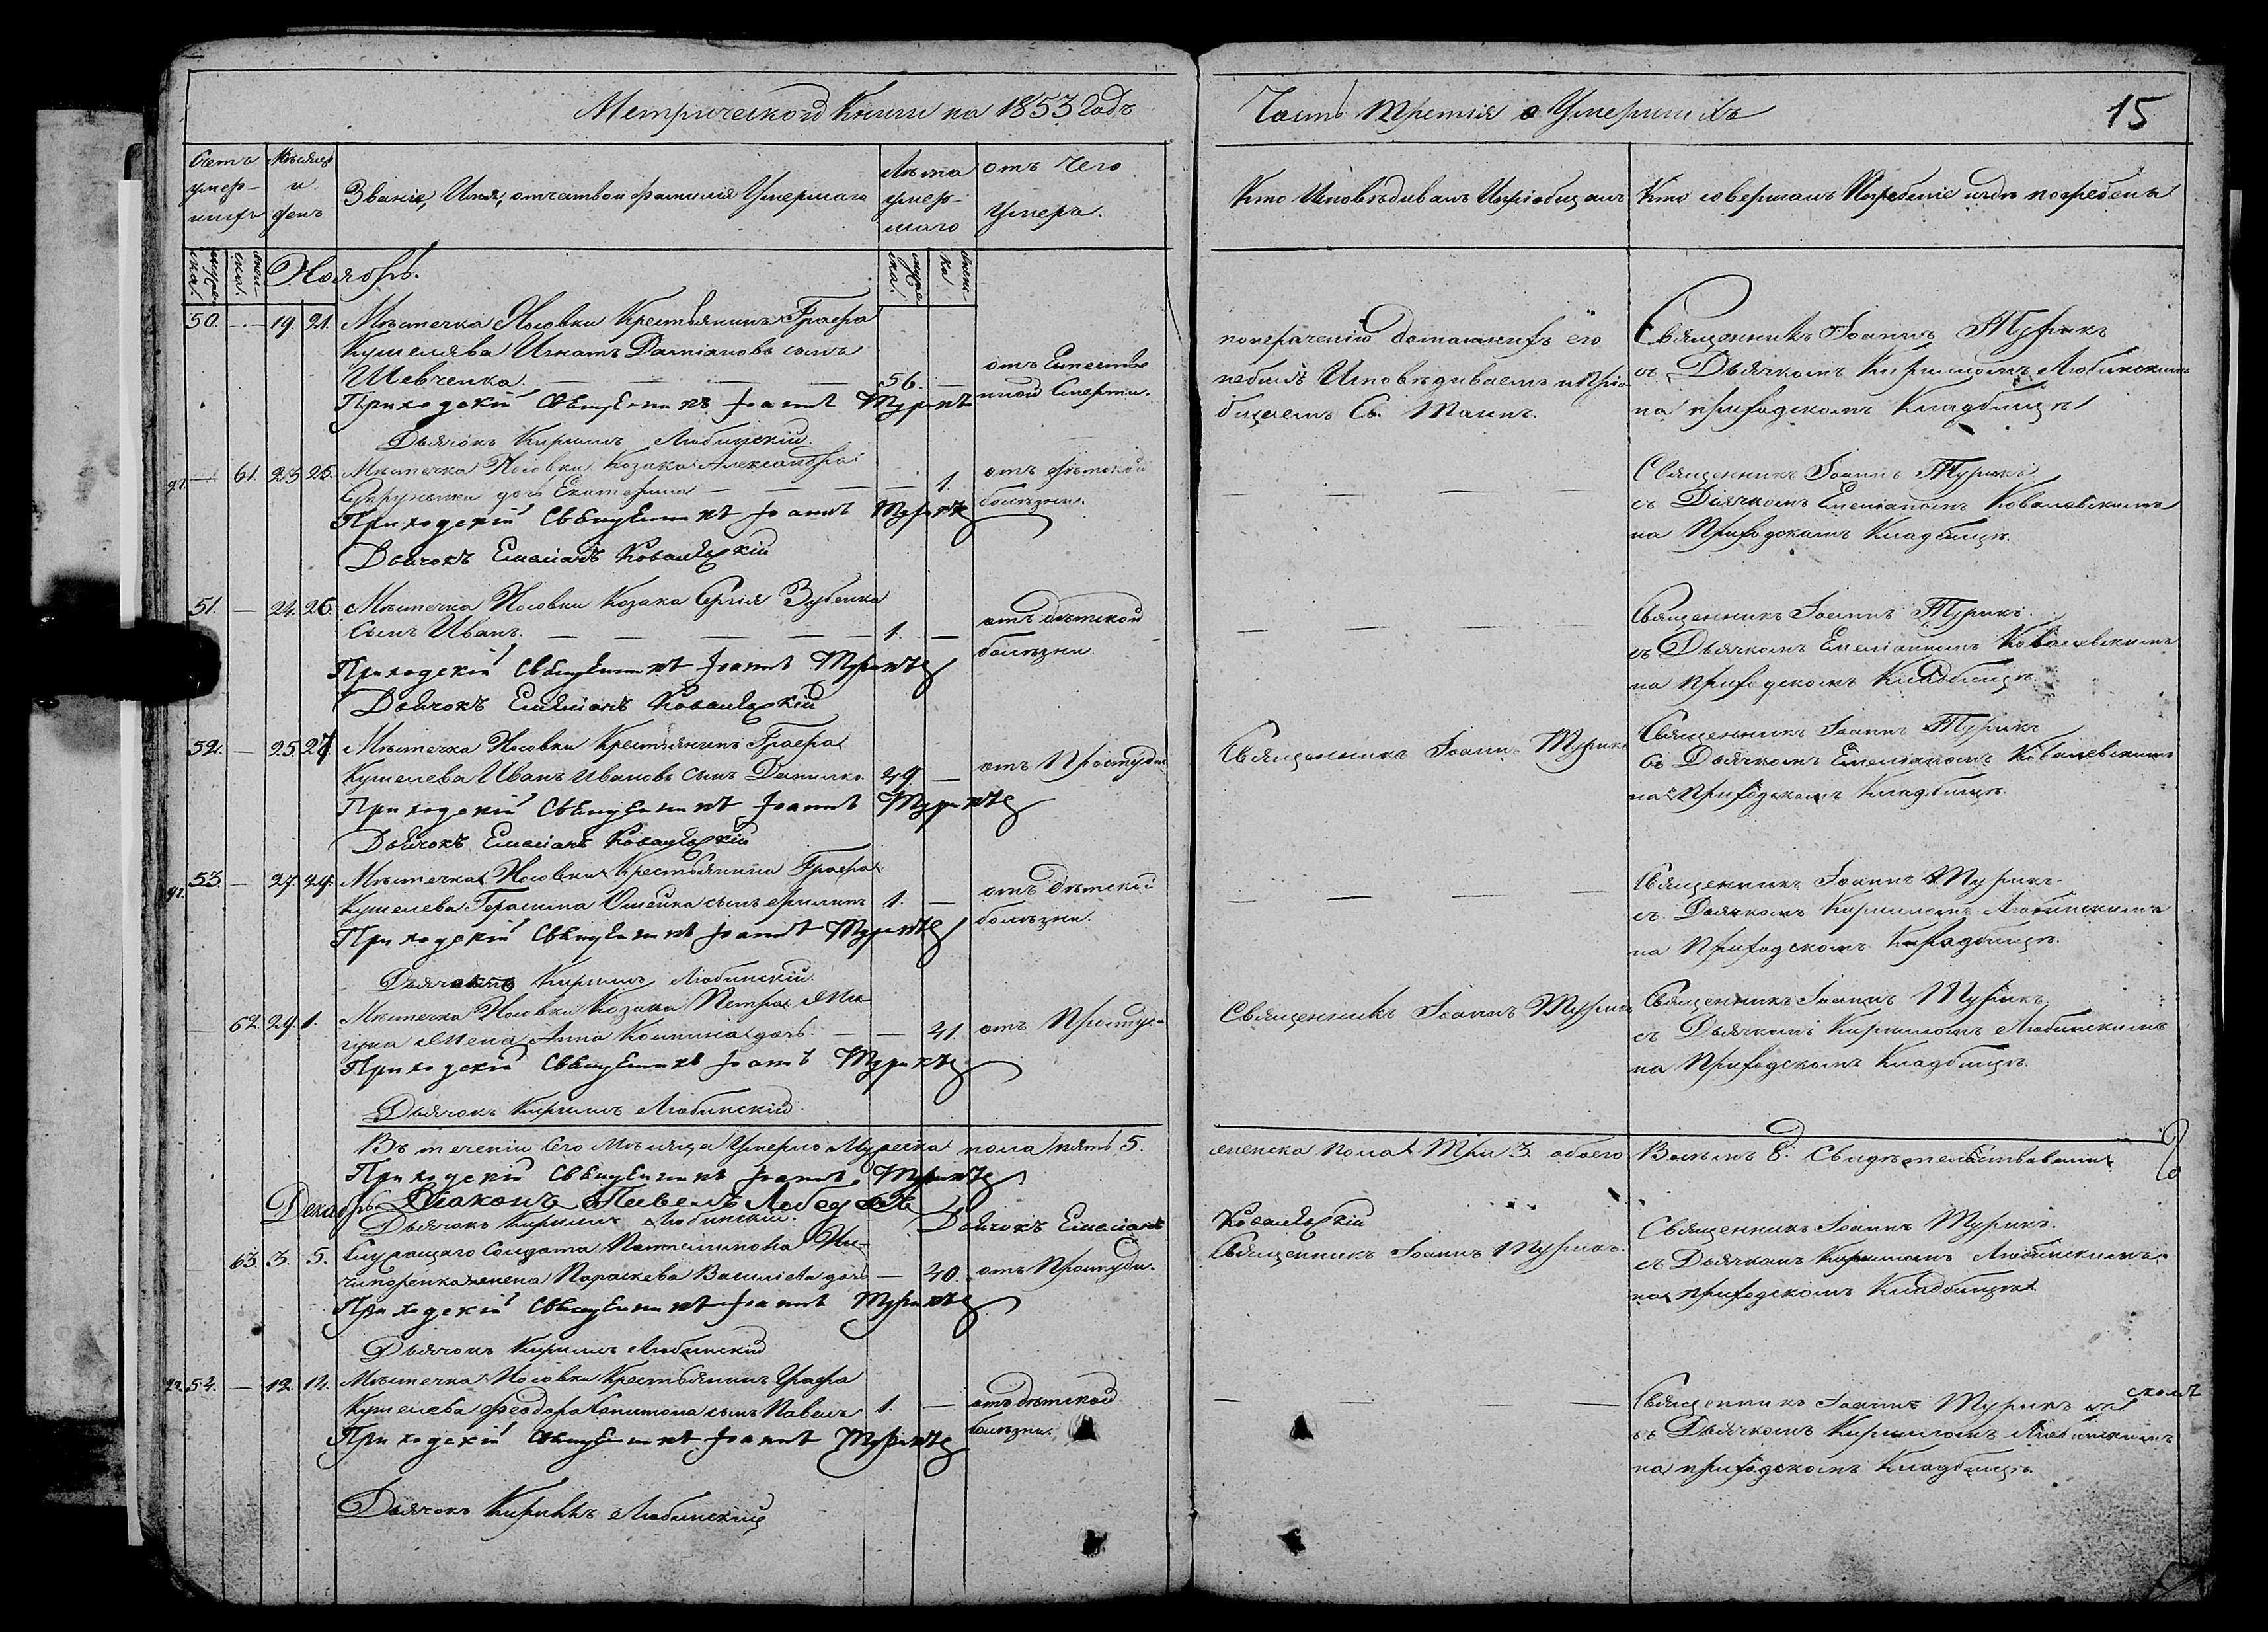 Метрической Книги на 1853 Годъ
Часть третія о Умершихъ
15
Счетъ умер-шихъ
Мѣсяцъ и день
Званіе, Имя, отчество и фамилія Умершаго
Лѣта умер-шаго
отъ чего Умеръ.
Кто Исповѣдывалъ и пріобщалъ
Кто совершалъ Погребеніе и гдѣ погребенъ
мужеска.
женска.
Ноябрь.
мужеска.
женска
50. — 19. 21. Мѣстечка Носовки Крестьянинъ Графа
Кушелева Игнатъ Даміановъ сынъ
Шевченка. — — — — 56. —
отъ Естественной Смерти.
по нераченію домашнихъ его
небылъ Исповѣдываемъ и прiо-
бщаемъ Св. Таинъ.
Священникъ Іоаннъ Турикъ
съ Дьячкомъ Кирилломъ Любинскимъ
на приходскомъ Кладбищѣ
Приходскій Священникъ Іоаннъ Турикъ
Дьячокъ Кириллъ Любинскій.
— 61. 23. 25. Мѣстечка Носовки Козака Александра
дочь Екатерина — — — — 1.
отъ дѣтской
болѣзни.
— — — —
Священникъ Іоаннъ Турикъ
съ Діячкомъ Емеліаномъ Ковалевскимъ
на Приходскомъ Кладбищѣ.
Приходскій Священникъ Іоаннъ Турикъ
Дьячокъ Емеліанъ Ковалевскій
51. — 24. 26. Мѣстечка Носовки Козака Сергія Зубенка
сынъ Иванъ. — — — — 1. —
отъ дѣтской
болѣзни.
— — — —
Священникъ Іоаннъ Турикъ.
съ Дьячкомъ Емеліаномъ Ковалевскимъ
на приходскомъ Кладбищѣ
Приходскій Священникъ Іоаннъ Турикъ
Дьячокъ Емеліанъ Ковалевскій
52. — 25. 27. Мѣстечка Носовки Крестьянинъ Графа
Кушелева Иванъ Ивановъ сынъ Данилко. 49 —
отъ Простуды
Священникъ Іоаннъ Турикъ
Священникъ Іоаннъ Турикъ
съ Дьячкомъ Емеліаномъ Ковалевскимъ
на Приходскомъ Кладбищѣ.
Приходскій Священникъ Іоаннъ Турикъ
Дьячокъ Емеліанъ Ковалевскій
53. — 27. 29. Мѣстечка Носовки Крестьянина Графа
Кушелева Герасима сынъ Филипъ 1. —
отъ дѣтской
болѣзни.
— — — —
Священникъ Іоаннъ Турикъ
съ Дьячкомъ Кирилломъ Любинскимъ
на Приходскомъ Кладбищѣ.
Приходскій Священникъ Іоаннъ Турикъ
Дьячокъ Кириллъ Любинскій.
— 62. 29. 1. Мѣстечка Носовки Козака Петра
жена Анна дочь — — 41.
отъ Простуды
Священникъ Іоаннъ Турикъ
Священникъ Іоаннъ Турикъ
съ Дьячкомъ Кирилломъ Любинскимъ
на Приходскомъ Кладбищѣ.
Приходскій Священникъ Іоаннъ Турикъ
Дьячокъ Кириллъ Любинскій
Въ теченіи Сего Мѣсяца Умерло Мужеска пола пять 5. женска пола Три 3. обоего Восемь 8. Свидѣтельствовали
Приходскій Священникъ Іоаннъ Турикъ
Діаконъ Павелъ
Декабрь
Дьячокъ Кириллъ Любинскій. Дьячокъ Емеліанъ Ковалевскій
— 63. 3. 5. Служащаго Солдата Пантелимона Ни-
чипоренка жена Параскева Василіева дочь — 40.
отъ Простуды.
Священникъ Іоаннъ Турикъ.
Священникъ Іоаннъ Турикъ.
съ Дьячкомъ Кирилломъ Любинскимъ
на приходскомъ Кладбищѣ
Приходскій Священникъ Іоаннъ Турикъ
Дьячокъ Кириллъ Любинскій
54. — 12. 14. Мѣстечка Носовки Крестьянинъ Графа
Кушелева Феодора Капитона сынъ Павелъ 1. —
отъ дѣтской
болѣзни.
— — —
Священникъ Іоаннъ Турикъ
съ Дьячкомъ Кирилломъ Любинскимъ
на приходскомъ Кладбищѣ.
Приходскій Священникъ Іоаннъ Турикъ
Дьячокъ Кириллъ Любинскій